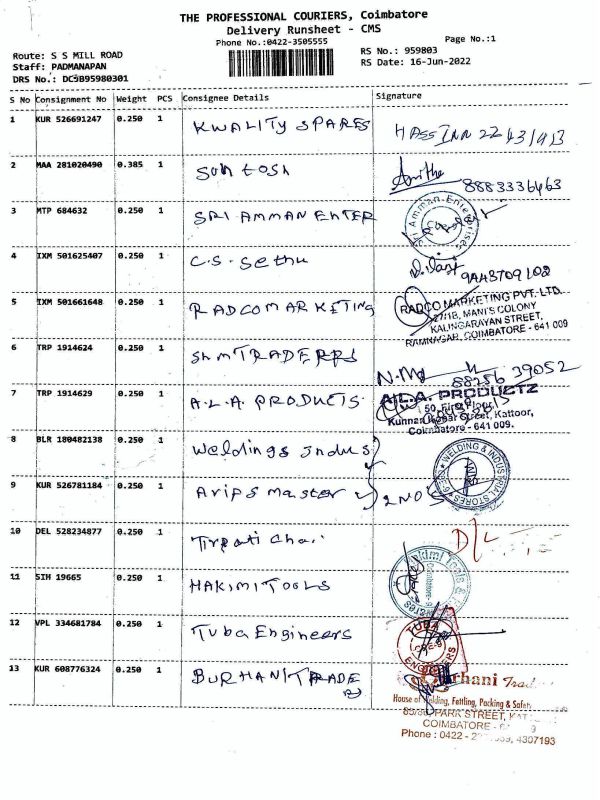 THE PROFESSIONAL COURIERS, Coimbatore
Delivery Runsheet - CMS
Phone No.:0422-3505555
Page No.:1
Route: S S MILL ROAD
RS No.: 959803
Staff: PADMANAPAN
RS Date: 16-Jun-2022
DRS No.: DCJB95980301
S No Consignment No Weight PCS Consignee Details Signature
1 KUR 526691247 0.250 1 KWALITY SPARES
2 MAA 281020490 0.385 1 Suntosh Anitha 8883336463
3 MTP 684632 0.250 1 SRI AMMAN ENTER
Sri Amman Enterprises
4 IXM 501625407 0.250 1 C.S. Sethu
5 IXM 501661648 0.250 1 RADCOMARKETING
RADCO MARKETING PVT. LTD.
27/1B, MANI'S COLONY
KALINGARAYAN STREET,
RAMNAGAR, COIMBATORE - 641 009
6 TRP 1914624 0.250 1
88256 39052
7 TRP 1914629 0.250 1 A.L.A. PRODUCTS
A.L.A. PRODUCTZ
50, First Floor,
Kattoor,
Coimbatore - 641 009.
8 BLR 180482138 0.250 1 Weldings Indus
WELDING & INDUSTRIAL STORES
9 KUR 526781184 0.250 1 Arips master 2 NOS
10 DEL 528234877 0.250 1 Tirpati Chai D/L
11 SIH 19665 0.250 1 HAKIMITOOLS
Tools &
Coimbatore
12 VPL 334681784 0.250 1 Tuba Engineers
TUBA
ENGINEERS
13 KUR 608776324 0.250 1 BURHANITRADE
House of Welding, Fettling, Packing & Safety
PARK STREET,
COIMBATORE -
Phone : 0422 - 4307193